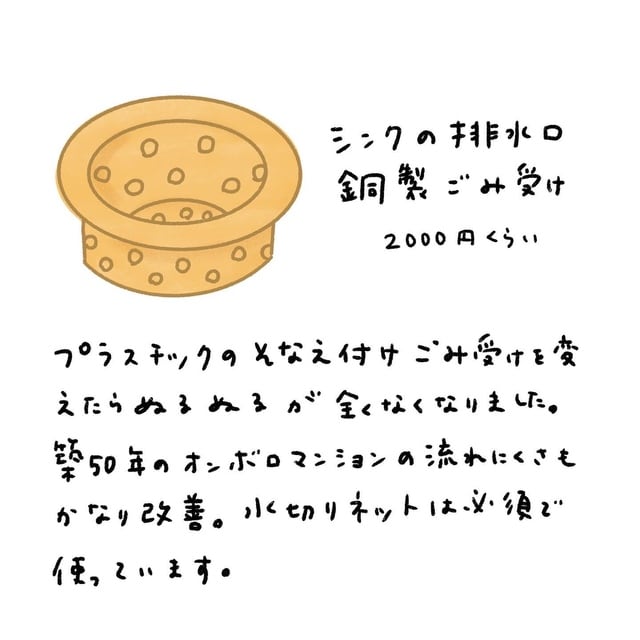 シンクの排水口
銅製ごみ受け
2000円くらい
プラスチックのそなえ付けごみ受けを変
えたらぬるぬるが全くなくなりました。
築50年のオンボロマンションの流れにくさも
かなり改善。水切りネットは必須で
使っています。